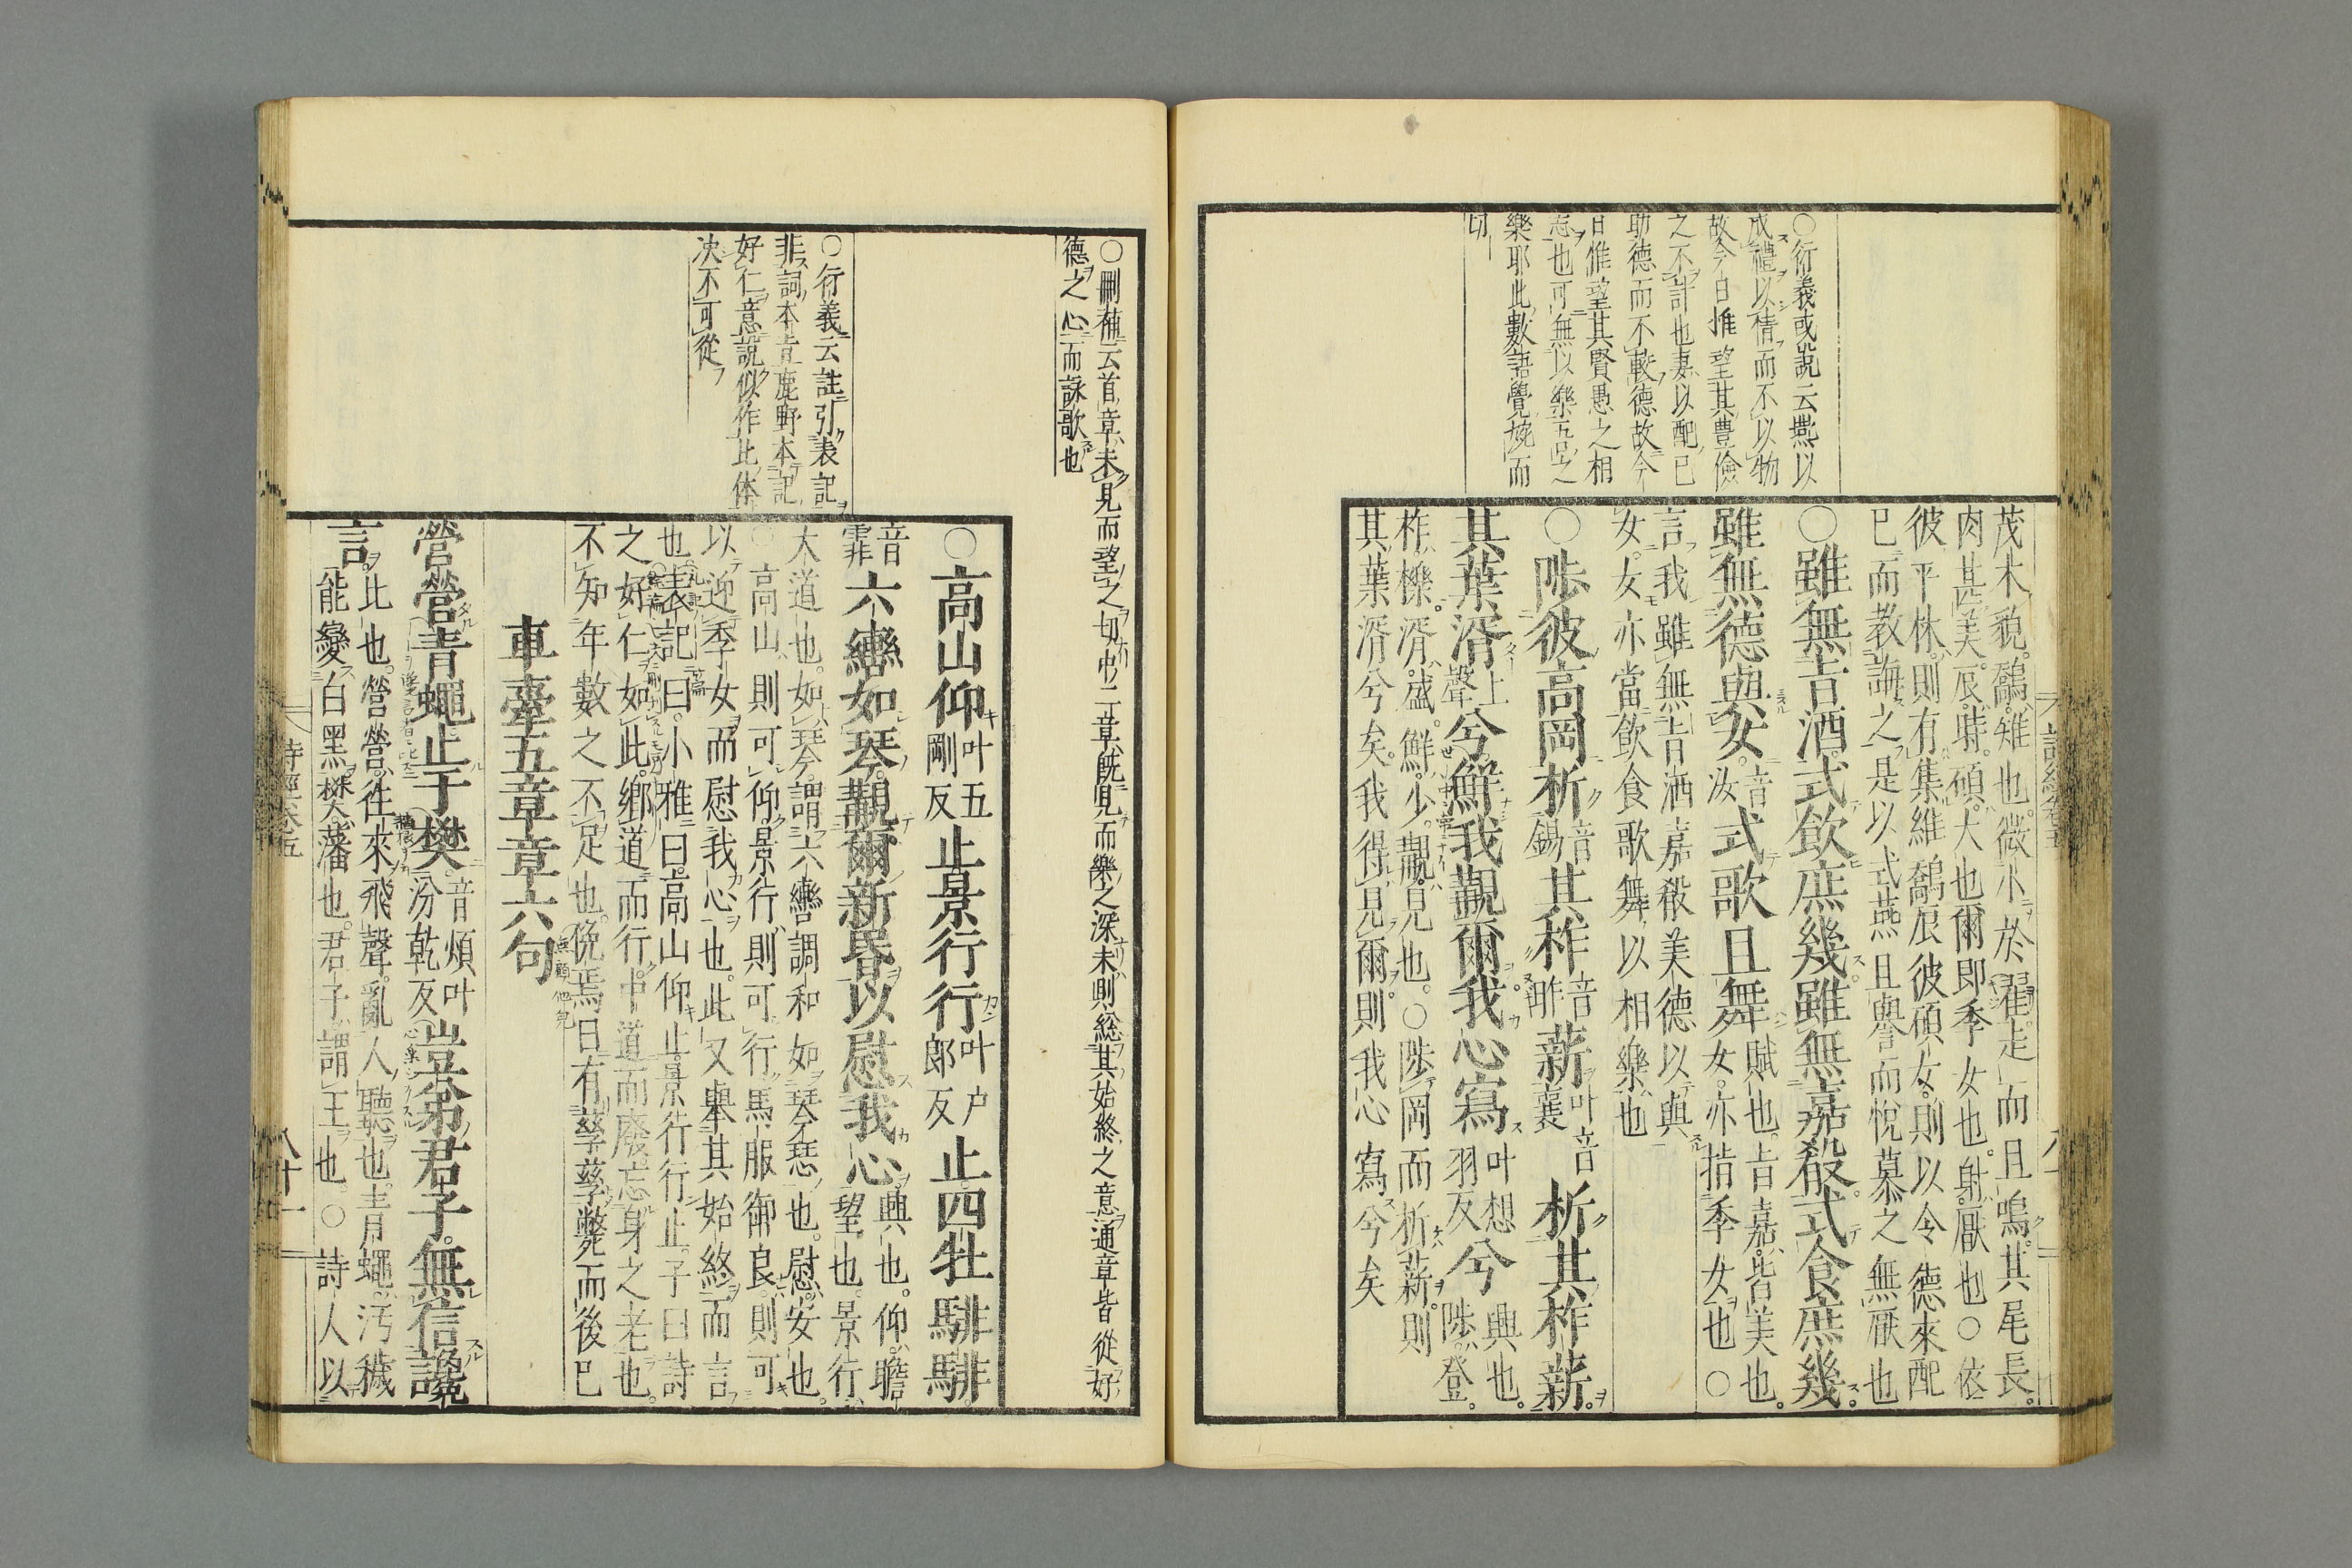 ○衍義或説云燕以
成禮以情而不以物
故今日惟望其豊儉
之不計也妻以配已
助德而不較德故今
日惟望其賢愚之相
忘也可無以樂吾兄之
樂耶此數語覺婉而
切
茂木貌。鷮。雉也。微小於翟。走而且鳴。其尾長。
肉甚美。辰。時。碩。大也爾即季女也。射。厭也○依
彼平林。則有集維鷮辰彼碩女。則以令德來配
已而教誨之是以式燕且譽而悅慕之無厭也
○雖無旨酒。式飲庶幾。雖無嘉殽。式食庶幾。
雖無德與女。音汝式歌且舞賦也。旨嘉。皆美也。女。亦指季女也○
言我雖無旨酒嘉殽美德以與
女。女亦當飲食歌舞以相樂也
○陟彼高岡析音錫其柞音昨薪叶音襄析其柞薪。
其葉湑上聲兮鮮我覯爾我心寫叶想羽反兮興也。陟。登。
柞。櫟。湑。盛。鮮。少。覯。見也。○陟岡而析薪。則
其葉湑兮矣。我得見爾。則我心寫兮矣
○刪補云首章未見而望之切中二章既見而樂之深末則総其始終之意通章皆從好
德之心而詠歌也
○衍義云註引表記
非詞本意鹿野本記
好仁意説似作此体
决不可從
○高山仰叶五剛反止景行行叶户郎反止。四牡騑騑。
音霏六轡如琴。覯爾新昏以慰我心。興也。仰。瞻望也。景行。
大道也。如琴。謂六轡調和如琴瑟也。慰。安也。
○高山則可仰。景行則可行。馬服御良。則可
以迎季女而慰我心也。此又舉其始終而言
也。表記曰。小雅曰。高山仰止景行行止。子曰詩
之好仁如此。鄉道而行。中道而廢。忘身之老也。
不知年數之不足也。俛焉日有孳孳。斃而後已
車舝五章章六句
營營青蠅止于樊。音煩叶汾乾反豈弟君子。無信讒
言。比也。營營。往來飛聲。亂人聽也。青蠅。汚穢
能變白黑。樊。藩也。君子。謂王也。○詩人以
詩經卷五
八十一